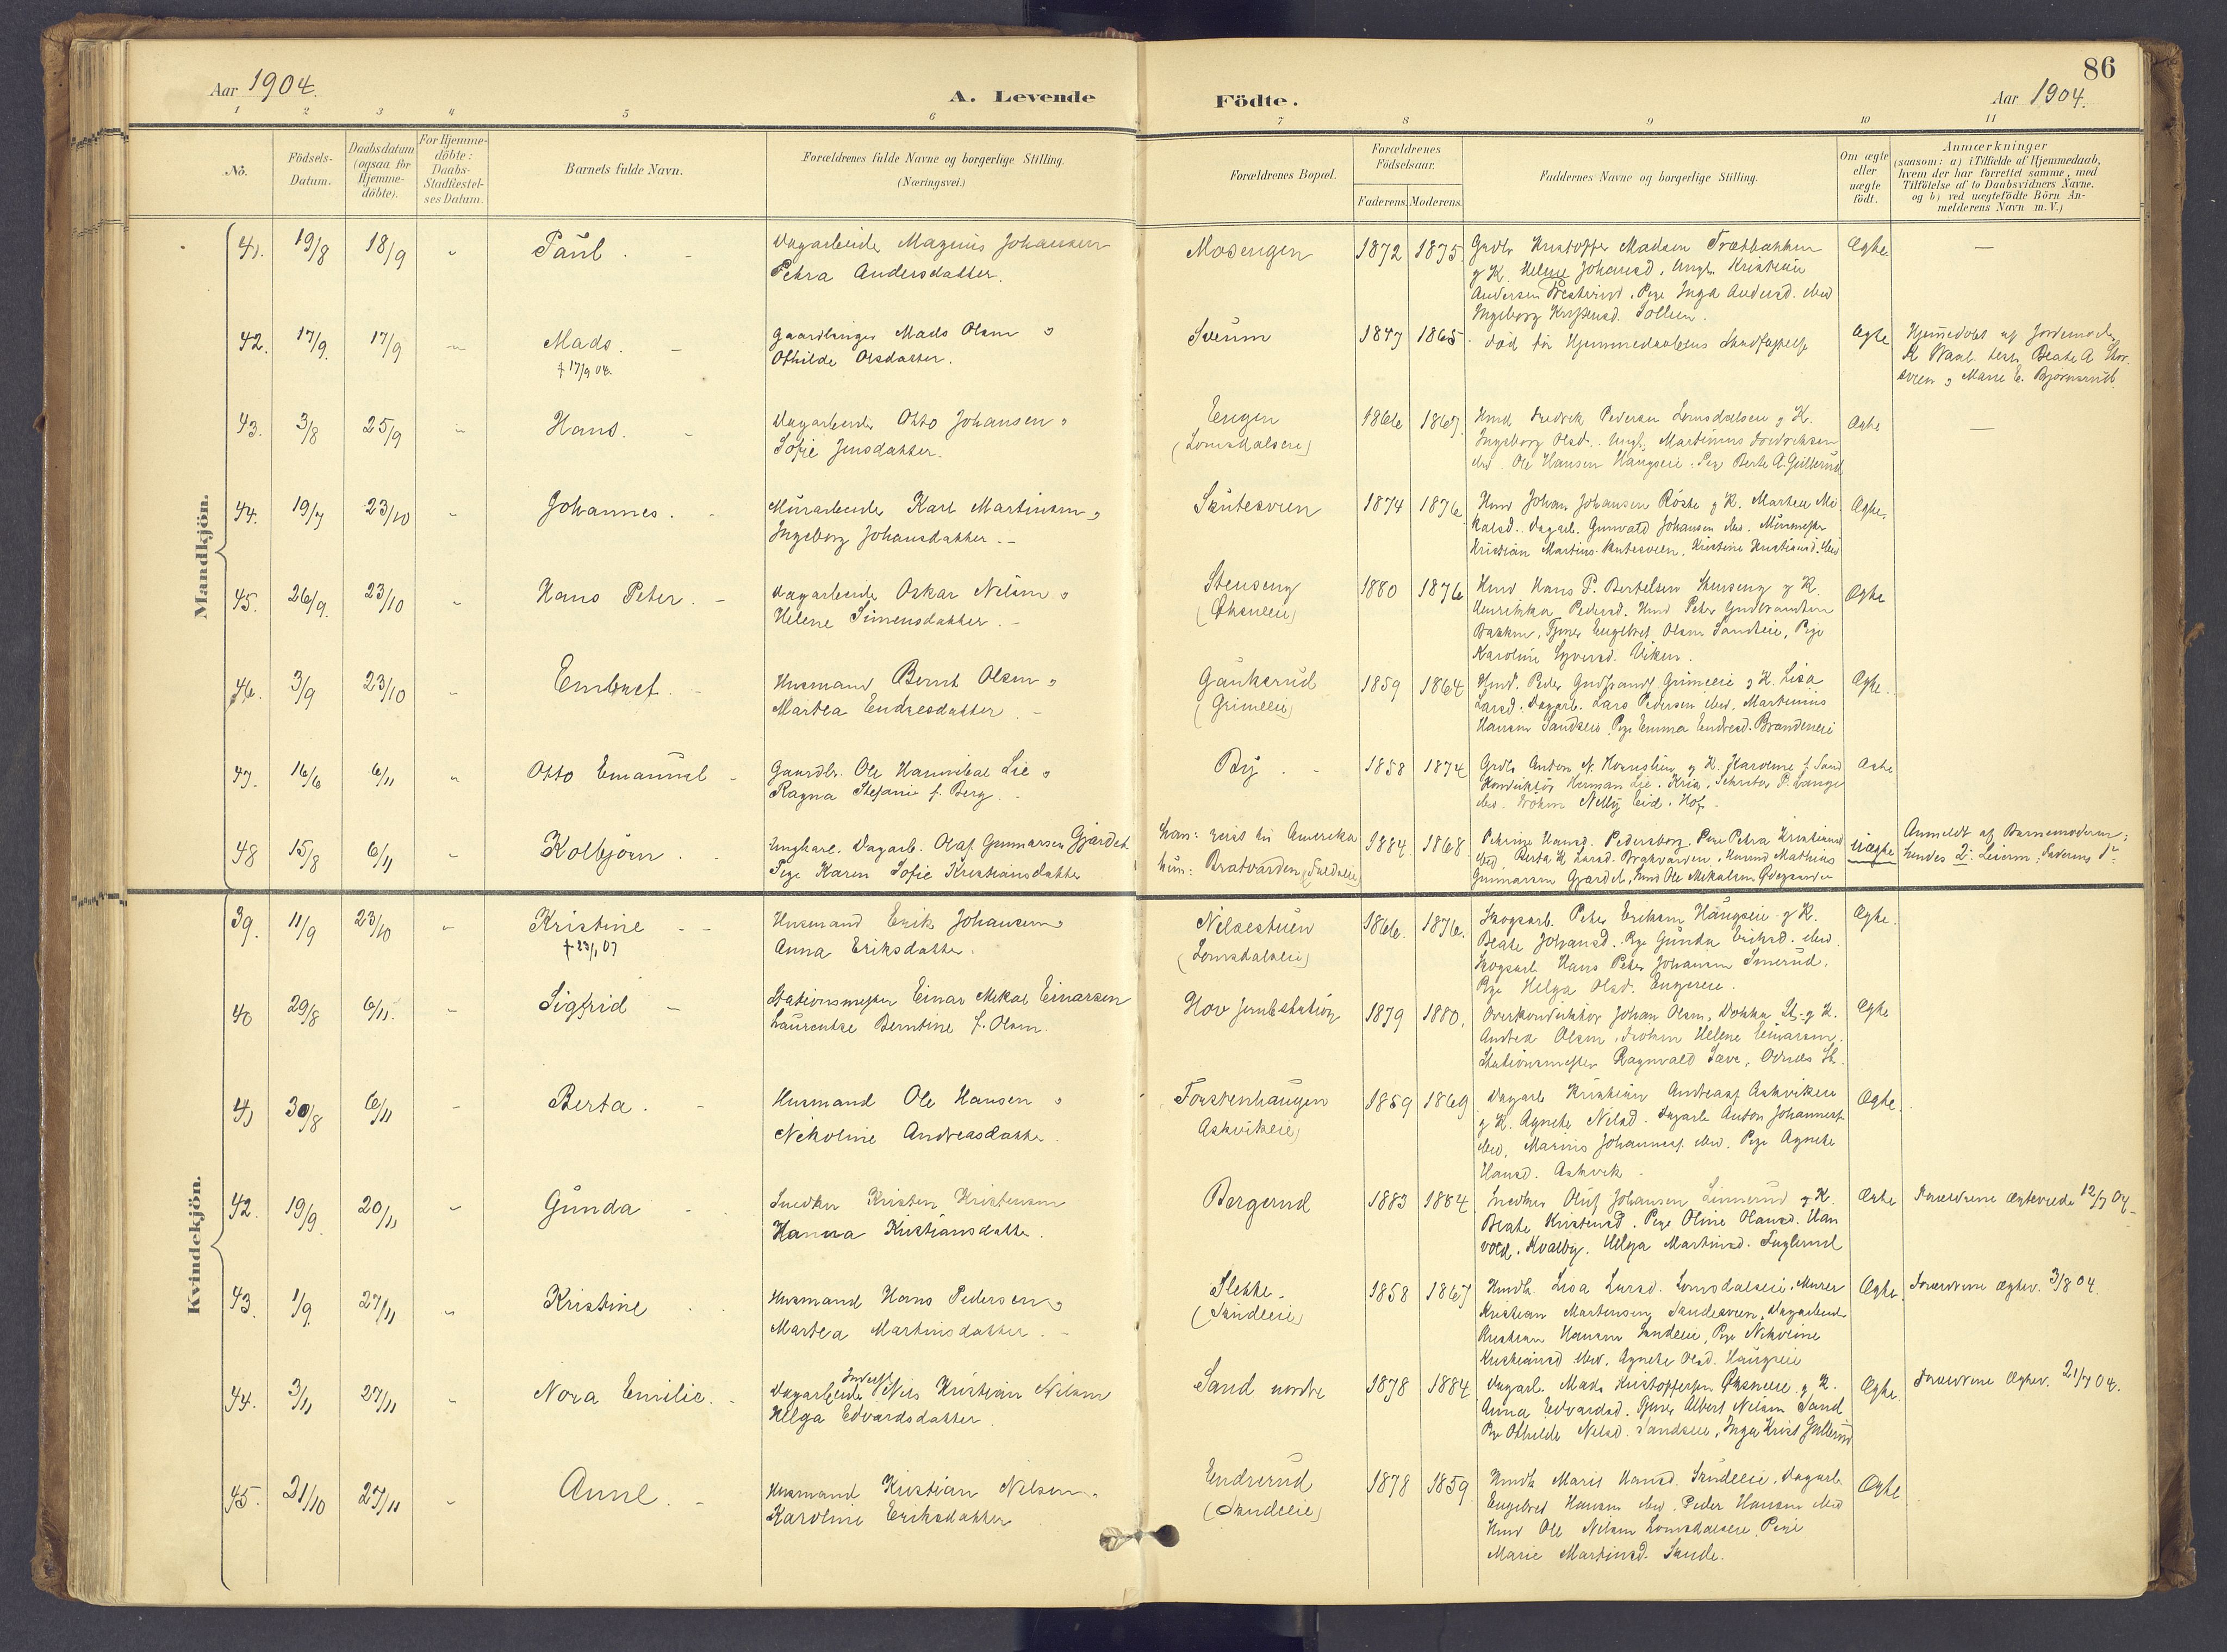 86
Aar 1904.
A. Levende
Födte.
Aar 1904.
1 2 3 4 5 6 7 8 9 10 11
No.
Födsels-
Datum.
Daabsdatum
(ogsaa for
Hjemme-
döbte).
For Hjemme-
döbte:
Daabs-
Stadfæstel-
ses Datum.
Barnets fulde Navn.
Forældrenes fulde Navne og borgerlige Stilling.
(Næringsvei.)
Forældrenes Bopæl.
Forældrenes
Födselsaar.
Faderens. Moderens.
Faddernes Navne og borgerlige Stilling.
Om ægte
eller
uægte
födt.
Anmærkninger
(saasom: a) i Tilfælde af Hjemmedaab,
hvem der har forrettet samme, med
Tilföielse af to Daabsvidners Navne.
og b) ved uægtefödte Börn An-
melderens Navn m. V.)
Mandkjön.
41. 19/8 18/9 " Paul.
Dagarbeider Magnus Johansen
Petra Andersdatter.
Mosengen 1872 1875
Grdbr Kristoffer Madsen
g K. Helene Johansd. Ungk. Kristian
Andersen Pige Inga Andersd. ibid
Ingeborg
Ægte —
42. 17/9. 17/9 " Mads.
† 17/9 04.
Gaardbruger Mads Olsen o
Othilde Olsdatter.
Sveum 1847 1865.
död før Hjemmedaabens Stadfæstelse
Ægte
Hjemmedøbt af Jordemoder
Beate A
og Marie E. Bjørnerud
43. 3/8 25/9 " Hans.
Dagarbeider Otto Johansen o
Sofie Jensdatter.
Engen
(Lomsdalseie)
1866 1867.
Hmd Fredrik Pedersen Lomsdalseie g K.
Ingeborg Olsd. Ungk. Martinius Fredriksen
ibid. Ole Hansen Haugseie. Pige Berte A. Gullerud
Ægte —
44. 19/7 23/10 " Johannes.
Murarbeider Karl Martinsen o
Ingeborg Johansdatter. -
1874 1876.
Hmd Johan Johansen g K. Marthea Mi
kalsd. Dagarb. Gunvald Johansen ibid. Murmester
Kristian Kristine ibid
Ægte.
45. 26/9. 23/10 " Hans Peter.
Dagarbeider Oskar Nilsen o
Helene Simensdatter. -
Stenseng
1880 1876
Hmd Hans P. Bertelsen Stenseng g K.
Pedersd. Hmd Peter Gudbrandsen
Bakken, Tjener Engebret Olsen Sandseie, Pige
Karoline Syversd. Viken.
Ægte
46. 3/9 23/10 " Embret.
Husmand Bernt Olsen o
Martea Endresdatter. -
Gaukerud
(Grimeeie)
1859 1864
Hmd. Peder Grimeeie g K. Lisa
Larsd. Dagarb. Lars Pedersen ibid. Martinius
Hansen Sandseie Pige Emma Endresd. Brandeneie
Ægte.
47. 16/6 6/11 " Otto Emanuel
Gaardbr. Ole Hannibal Lie o
Ragna Stefanie f. Berg.
By. 1858 1874
Grdbr Anton g K. Karoline f. Sand
Konduktör Herman Lie. Kria. P. Lange
ibid. Fröken Nelly Eid. Hof.
Ægte
48 15/8 6/11 " Kolbjörn.
Ungkarl. Dagarb. Olaf Gunnarsen Gjærdet
Pige Karen Sofie Kristiansdatter
han: reist til Amerika
hun: Bratvarden
1884. 1868
Hansd. Pige Petra Kristiansd
ibid Berta K. Larsd. Bratvarden. Mathias
Gunnarsen Gjærdet. Hmd Ole Mikalsen
uægte
Anmeldt af Barnemoderen;
hendes 2. Leierm. Faderens 1.
Kvindekjön.
39. 11/9 23/10 " Kristine
† 23/1 07
Husmand Erik Johansen o
Anna Eriksdatter.
Nilsestuen
(Lomsdalseie)
1866. 1876.
Skogsarb. Peter Eriksen Haugseie g K.
Beate Johansd. Pige Gunda Eriksd. ibid.
Skogsarb Hans Peter Johansen
Pige Helga Olsd. Engereie.
Ægte.
40 29/8 6/11. " Sigfrid
Stationsmester Einar Mikal Einarsen
Laurentze Berntine f. Olsen.
Hov Jernbstation 1879 1880.
Overkonduktör Johan Olsen, Dokka St. g K.
Andrea Olsen, Fröken Helene Einarsen.
Stationsmester Ragnvald St.
Ægte
41 30/8 6/11 " Berta.
Husmand Ole Hansen o
Nekoline Andreasdatter.
Torstenhaugen
Askvikeie)
1859 1869
Dagarb Kristian Andreass Askvikeie
g K. Agnethe Nilsd. Dagarb Anton Johanness.
ibid. Marius Johanness. ibid. Pige Agnethe
Hansd. Askvik
Ægte.
42. 19/9. 20/11 " Gunda
Snedker Kristen Kristensen
Hanna Kristiansdatter.
Bergerud 1883 1884
Snedker Oluf Johansen Linnerud g K.
Beate Kristensd. Pige Oline Olausd.
Kvalby. Helga Martinsd. Fuglerud
Ægte Forældrene Ægteviede 12/7 04
43. 1/9. 27/11 " Kristine
Husmand Hans Pedersen o
Martea Martinsdatter. -
Slette.
(Sandeeie)
1858 1867
Hmdk. Lisa Larsd. Lomsdalseie, Murer
Kristian Martinsen, Dagarbeider
Kristian Hansen Sandeeie, Pige Nikoline
Kristiansd ibid. Agnethe Olsd. Haugseie
Ægte Forældrene Ægtev. 3/8 04.
44. 3/11 27/11 " Nora Emilie.
Dagarbeider Nils Kristian Nilsen
Helga Edvardsdatter.
Sand nordre 1878 1884
Dagarb. Mads Kristoffersen g K.
Anna Edvardsd. Tjener Albert Nilsen Sand
Pige Othilde Nilsd. Sandseie, Inga Krist Gullerud
Ægte. Forældrene Ægtev. 21/7 04.
45. 21/10 27/11 " Anne.
Husmand Kristian Nilsen o
Karoline Eriksdatter
Endrerud
(Sandeeie)
1878 1859
Hmdk Marit Hansd. Sandeeie. Dagarb.
Engebret Hansen ibid. Peder Hansen ibid
Hmd Ole Nilsen Lomsdalseie, Pige
Marie Martinsd. Sande.
Ægte